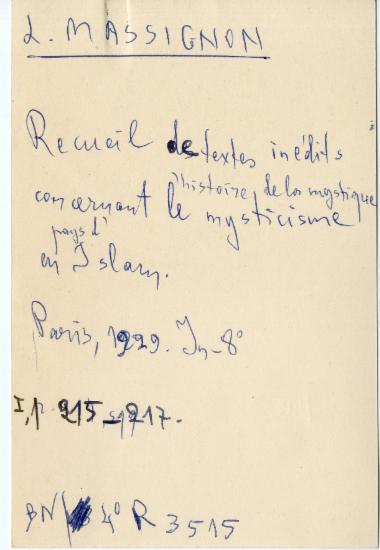 L. MASSIGNON
Recueil de textes inédits
l'histoire de la mystique
concernant le mysticisme
pays d'
en Islam.
Paris, 1929. In-8°
I, p. 215-217.
BN 4° R 3515